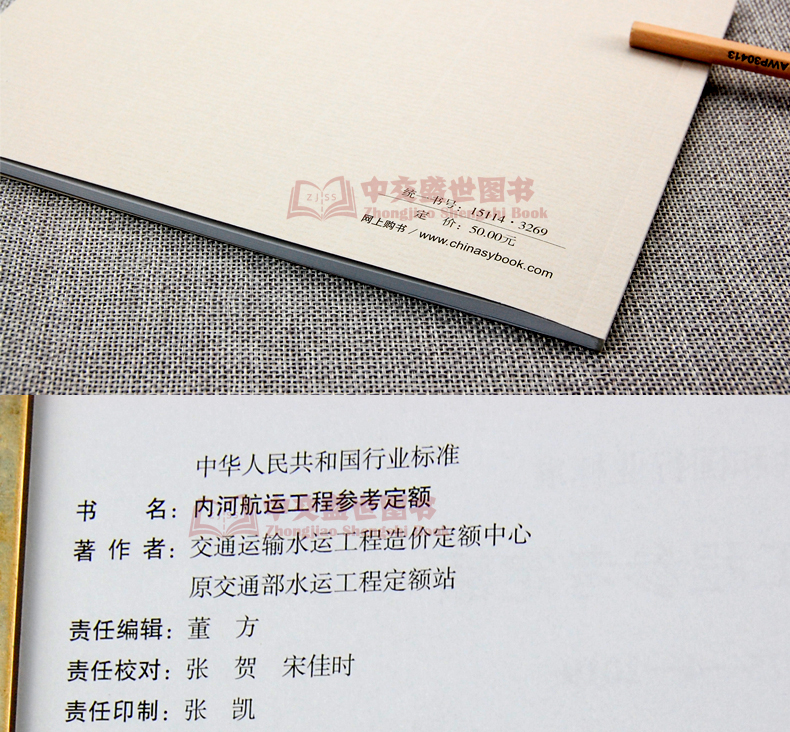 AWP30413
ZJSS
中交盛世图书
Zhongjiao Shengshi Book
统一书号：15114·3269
定 价：50.00元
网上购书/www.chinasybook.com
中华人民共和国行业标准
书 名：内河航运工程参考定额
中交盛世图书
Zhongjiao Shengshi Book
著 作 者：交通运输水运工程造价定额中心
原交通部水运工程定额站
责任编辑：董 方
责任校对：张 贺 宋佳时
责任印制：张 凯